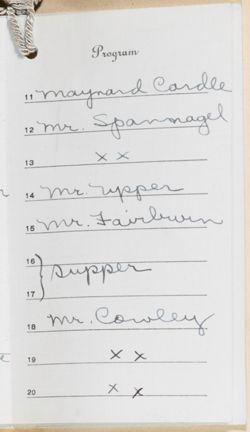 Program
11 Maynard Cardle
12 Mr. Spannagel
13 x x
14 Mr. Upper
15 Mr. Fairburn
16
supper
17
18 Mr. Cowley
19 x x
20 x x